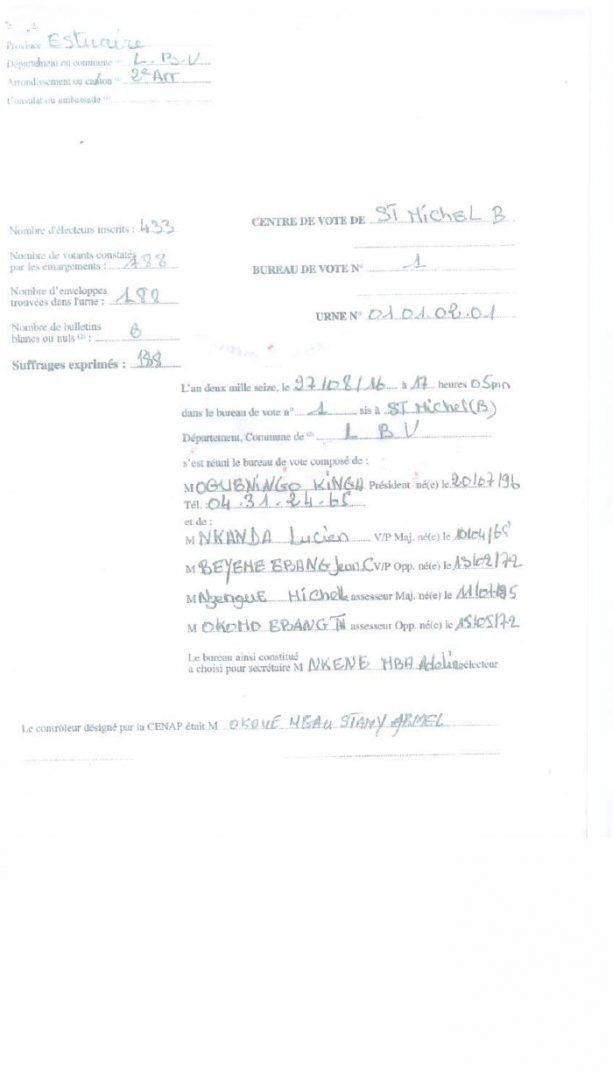 Province Estuaire
Département ou commune (1) L.B.V
Arrondissement ou canton (1) 2e Arr
Consulat ou ambassade (1)
Nombre d'électeurs inscrits : 433
Nombre de votants constatés
par les émargements : 188
Nombre d'enveloppes
trouvées dans l'urne :
Nombre de bulletins
blancs ou nuls (2) :
Suffrages exprimés : 188
CENTRE DE VOTE DE ST MicHEL B
BUREAU DE VOTE N° 1
URNE N° 01.01.02.01
L'an deux mille seize, le 27/08/16 à 17 heures 05
dans le bureau de vote n° 1 sis à ST Michel(B)
Département, Commune de (1) L B V
s'est réuni le bureau de vote composé de :
M OGUBNINGO KINGA Président né(e) le
Tél. 04.31.24.65
et de :
M NKANDA Lucien V/P Maj. né(e) le
M BEYEME EBANG Jean.C V/P Opp. né(e) le 13/02/72
M NzengUE MicHell assesseur Maj. né(e) le
M OKOMO EBANG assesseur Opp. né(e) le 15/05/72
Le bureau ainsi constitué
a choisi pour secrétaire M NKENE MBA électeur
Le contrôleur désigné par la CENAP était M OKOUE MBAU STANY ARMEL